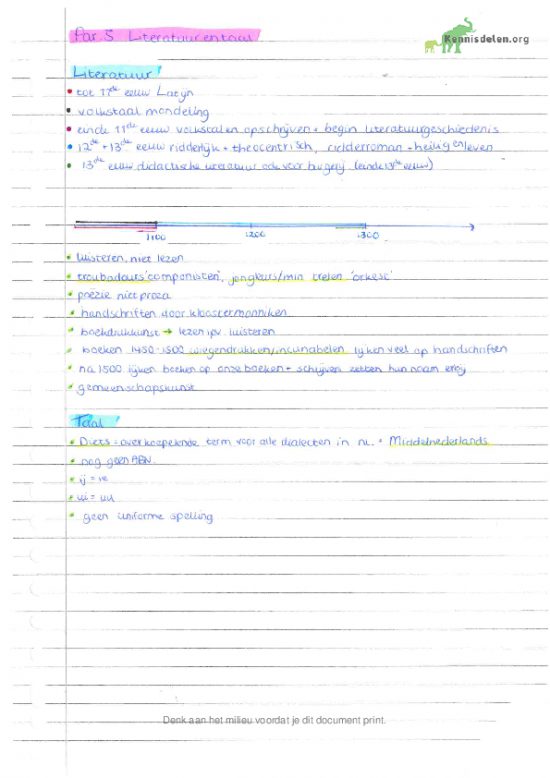 Par 5 Literatuur en taal
Kennisdelen.org
Literatuur
• tot 11de eeuw Latijn
• volkstaal mondeling
• einde 11de eeuw volkstalen opschrijven + begin literatuurgeschiedenis
• 12de + 13de eeuw ridderlijk + theocentrisch, ridderroman + heiligenleven
• 13de eeuw didactische literatuur ook voor burgerij (einde 13de eeuw)
1100 1200 1300
• luisteren, niet lezen
• troubadours 'componisten', jongleurs/min strelen 'orkest'
• poëzie niet proza
• handschriften door kloostermonniken
• boekdrukkunst → lezen ipv luisteren
• boeken 1450-1500 wiegendrukken/incunabelen lijken veel op handschriften
• na 1500 lijken boeken op onze boeken + schrijvers zetten hun naam erbij
• gemeenschapskunst
Taal
• Diets = overkoepelende term voor alle dialecten in nl. = Middelnederlands
• nog geen ABN
• ij = ie
• ui = uu
• geen uniforme spelling
Denk aan het milieu voordat je dit document print.